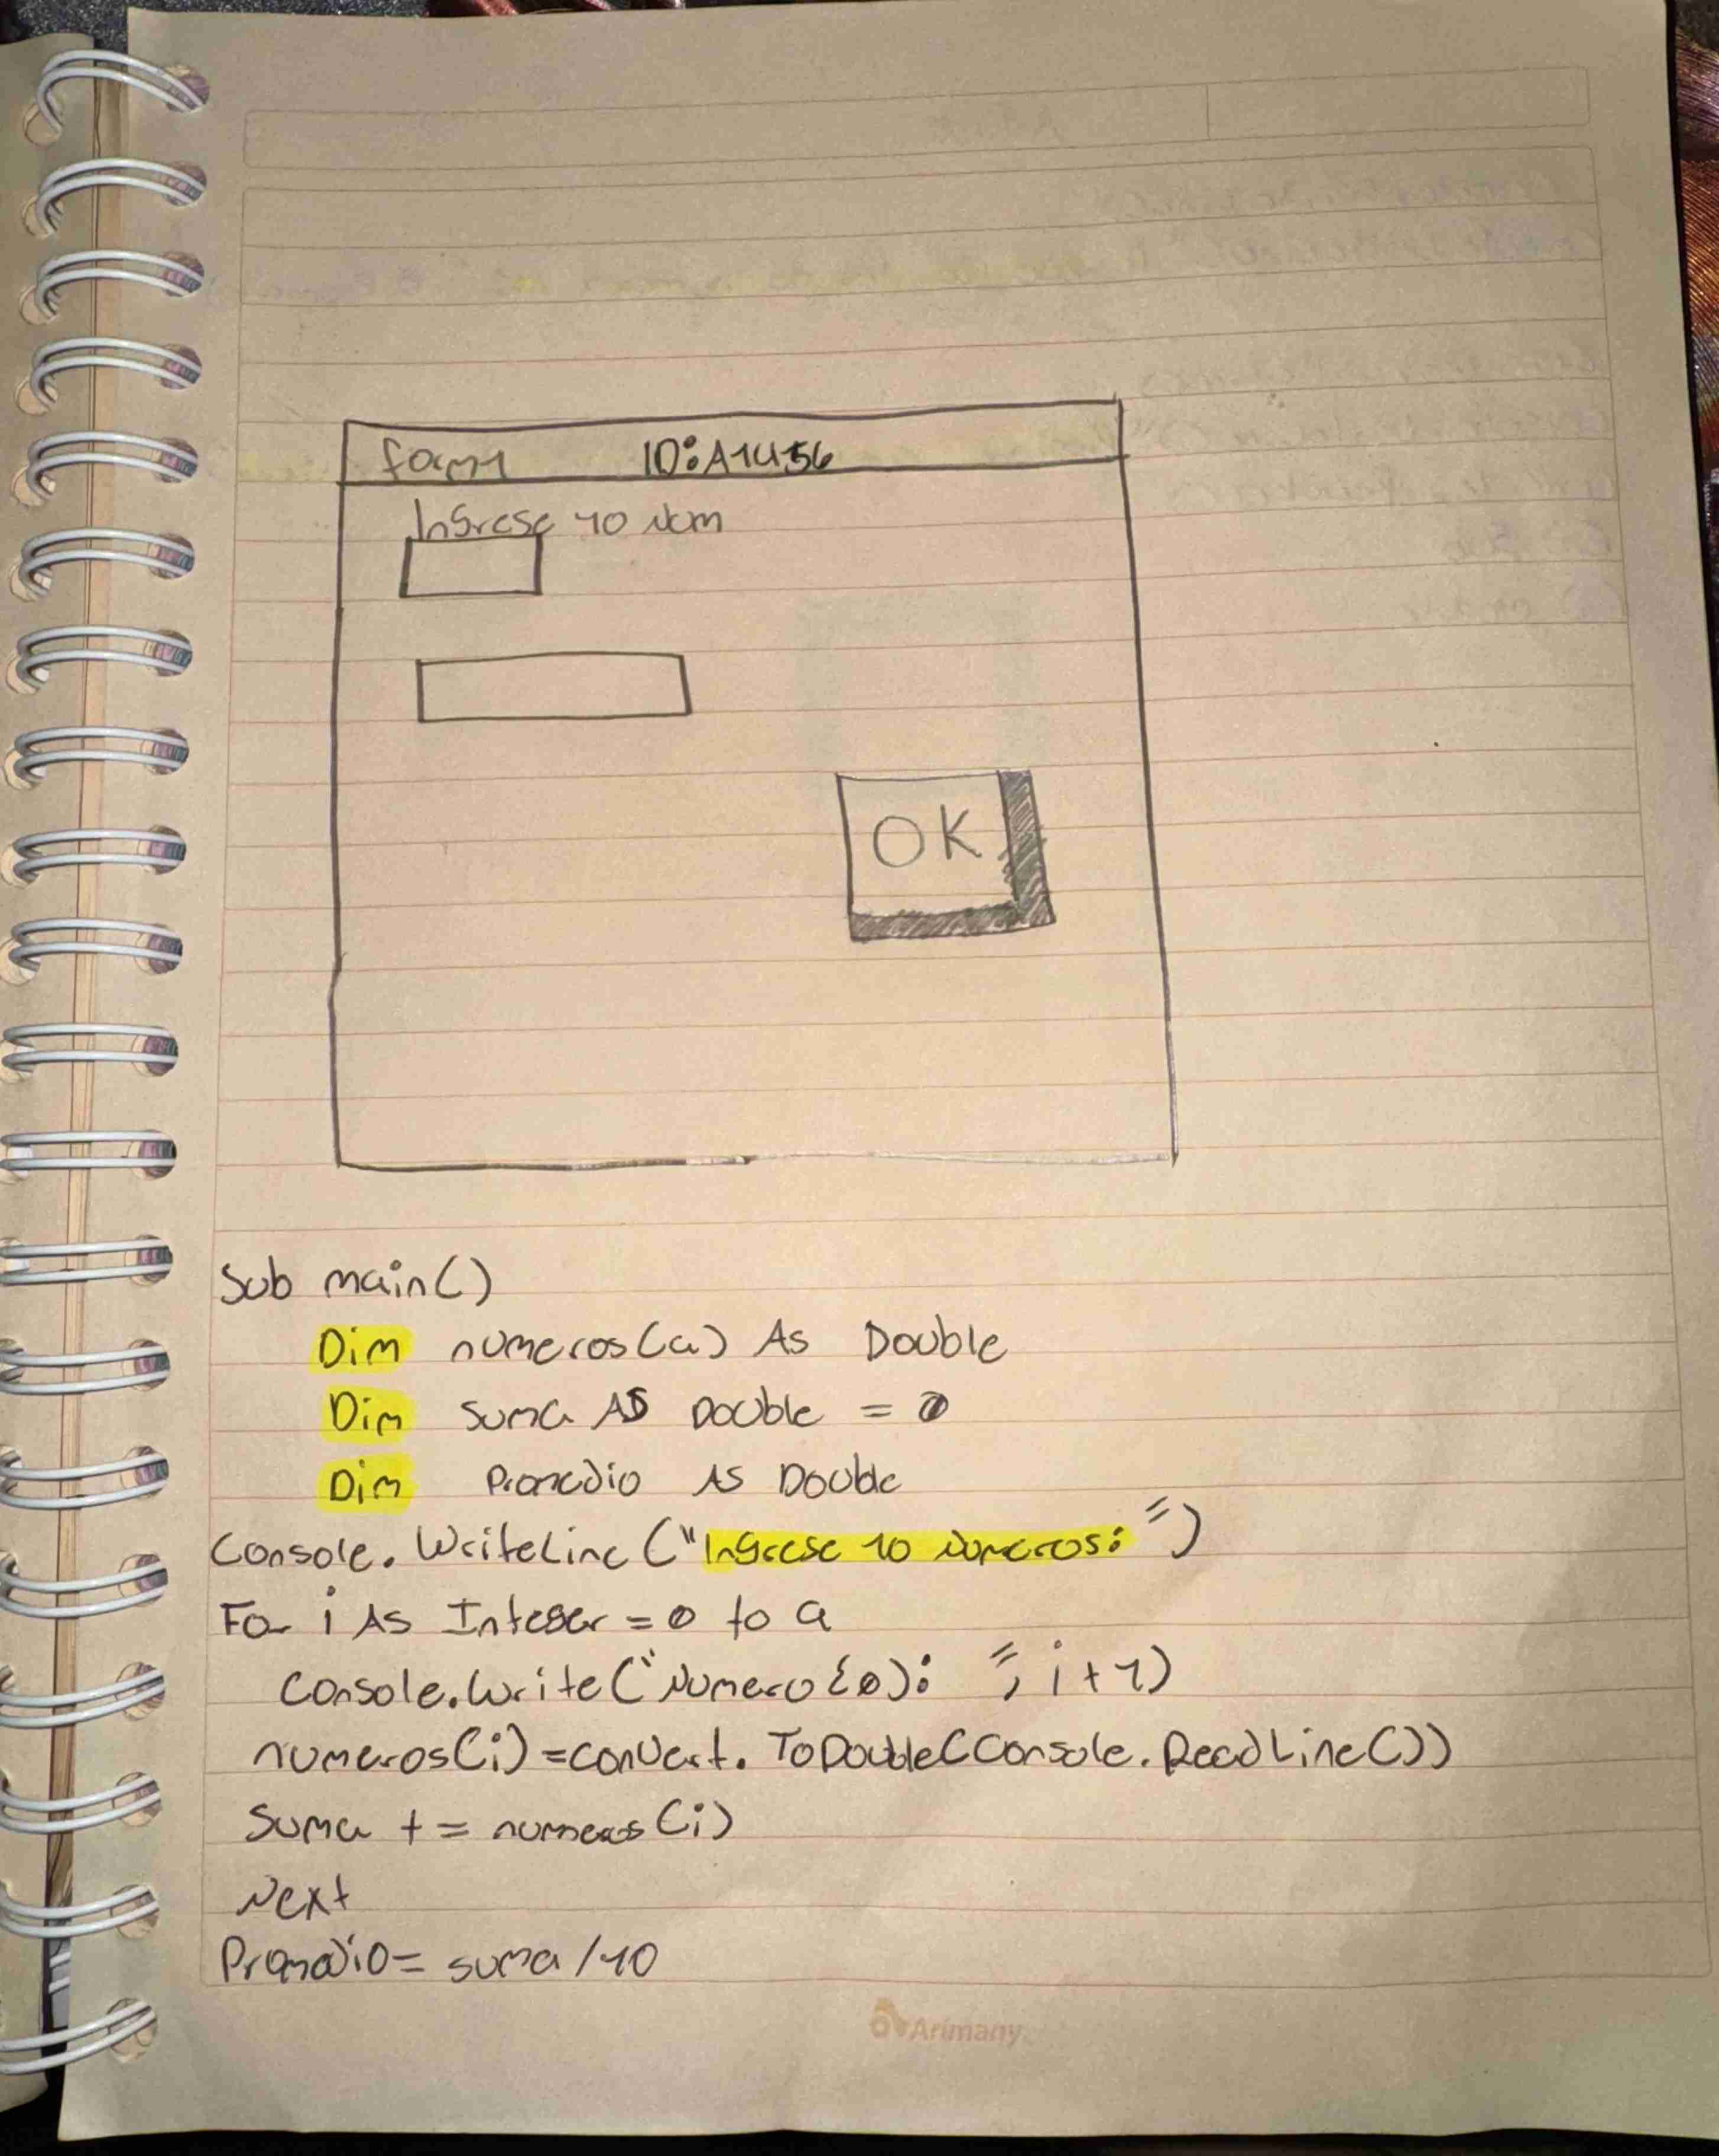 form1 ID:A1456
Ingrese 10 Num
OK
Sub main()
Dim numeros(a) As Double
Dim suma AS Double = 0
Dim Promedio As Double
Console.WriteLine("Ingrese 10 Numeros: ")
For i As Integer = 0 to a
Console.Write("Numero{0): ", i+1)
numeros(i)=convert.ToDouble(Console.ReadLine())
Suma += numeros(i)
Next
Promedio= suma /10
Arimany